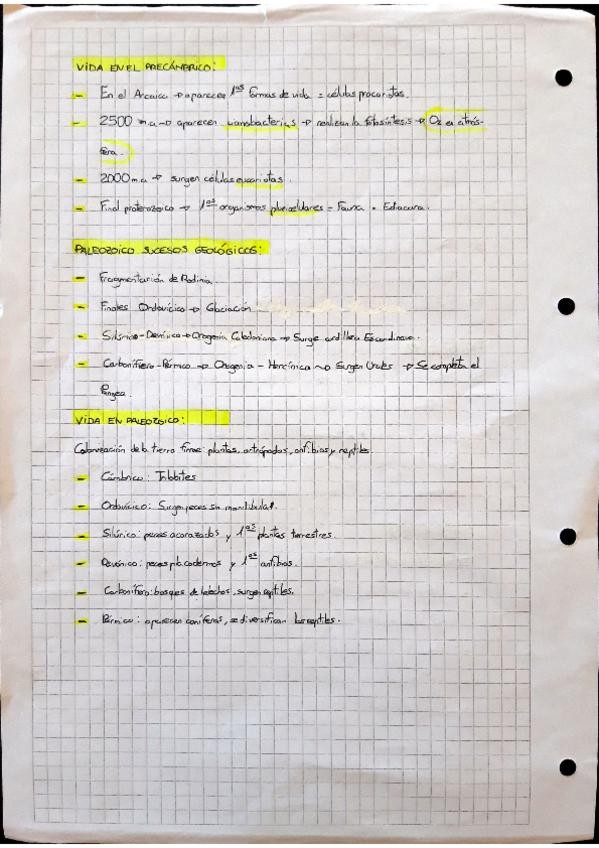 VIDA EN EL PRECÁMBRICO:
- En el Arcaico → aparecen 1as formas de vida = células procariotas.
- 2500 m.a → aparecen cianobacterias → realizan la fotosíntesis → O2 en atmós-
fera.
- 2000 m.a → surgen células eucariotas.
- Final proterozoico → 1os organismos pluricelulares = Fauna · Ediacara.
PALEOZOICO SUCESOS GEOLÓGICOS:
- Fragmentación de Rodinia.
- Finales Ordovícico → Glaciación
- Silúrico-Devónico → Orogenia Caledoniana → Surge cordillera Escandinava.
- Carbonífero-Pérmico → Orogenia - Hercínica → Surgen Urales → Se completa el
Pangea.
VIDA EN PALEOZOICO:
Colonización de la tierra firme: plantas, artrópodos, anfibios y reptiles
- Cámbrico: Trilobites
- Ordovícico: Surgen peces sin mandíbula.
- Silúrico: peces acorazados y 1as plantas terrestres.
- Devónico: peces placodermos y 1os anfibios.
- Carbonífero: bosques de helechos, surgen reptiles.
- Pérmico: aparecen coníferas, se diversifican los reptiles.